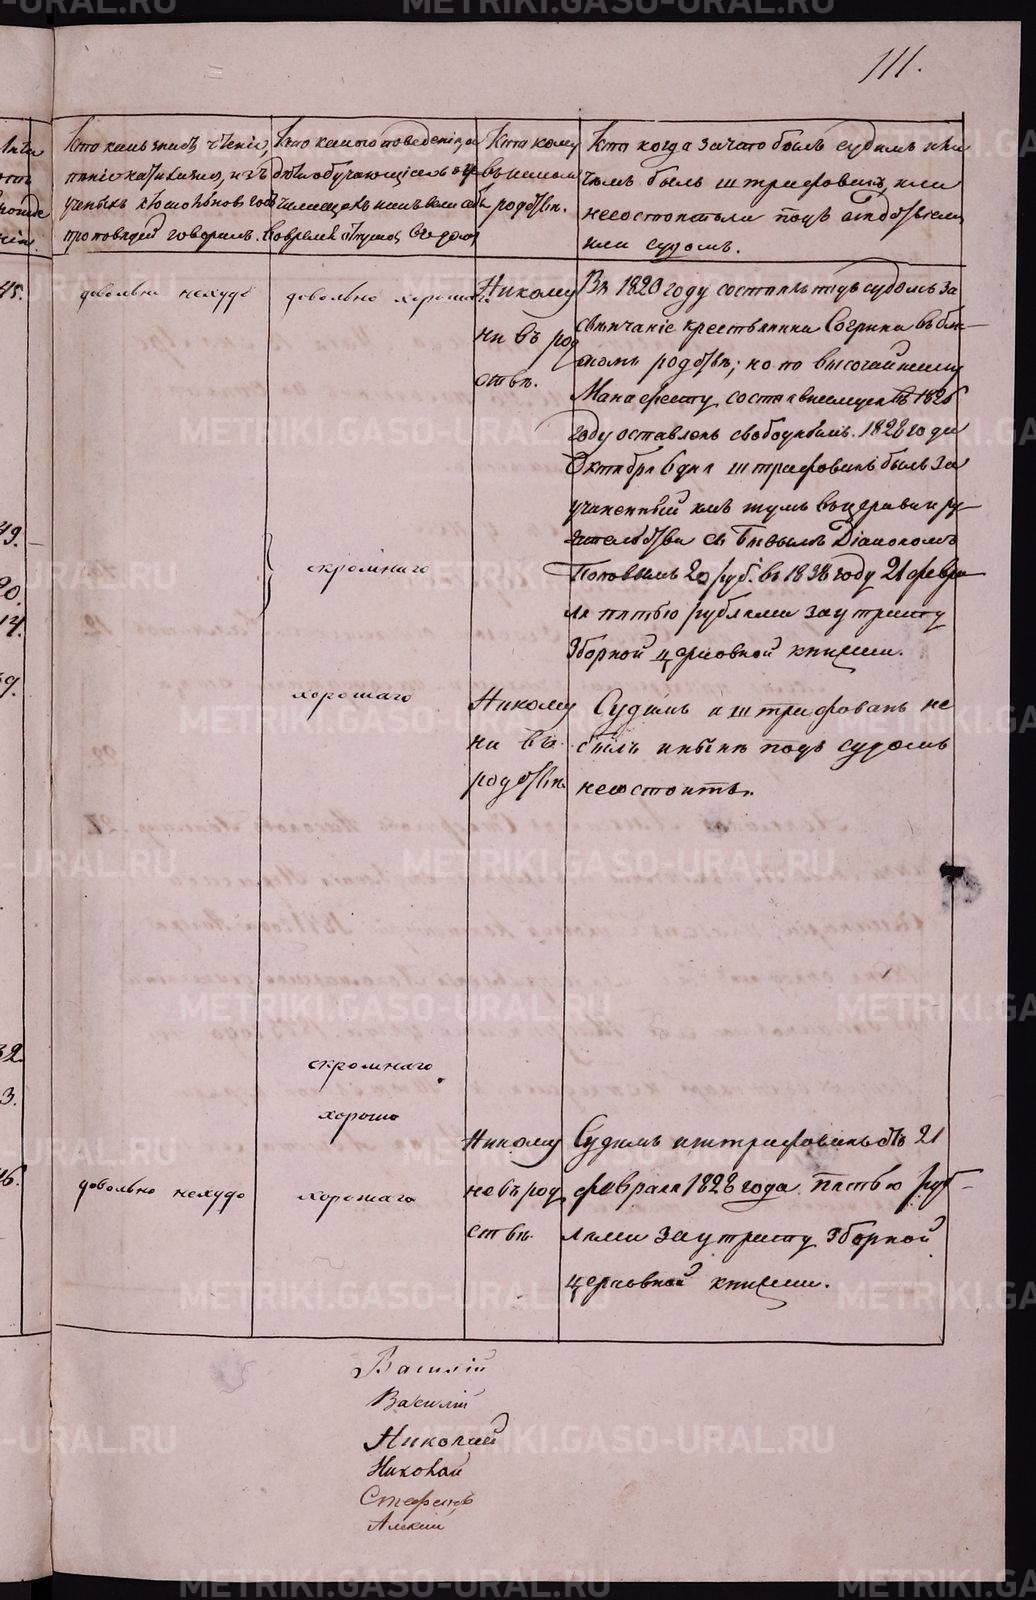 111.
Кто какъ знаетъ чтеніе,
пѣніе катихизисъ, и изъ
ученыхъ кто сколько въ годъ
проповѣдей говорилъ.
Кто какого поведенія, и
дѣти обучающіеся въ у
чилищахъ какъ вели себя
во время отпуска въ домы
Кто кому
въ какомъ
родствѣ.
Кто когда за что былъ судимъ или
чѣмъ былъ штрафованъ, или
не состоитъ ли подъ слѣдствіемъ
или судомъ.
45.
довольно нехудо
довольно хорошаго
Никому
ни въ род
ствѣ.
Въ 1820 году состоялъ подъ судомъ за
вѣнчаніе крестьянина Согрина въ бли—
комъ родствѣ; но по высочайшему
Манифесту, состоявшемуся въ 1826
году оставленъ свободнымъ. 1828 года
Октября 6 дня штрафованъ былъ за
учиненный имъ шумъ въ церкви и ру—
гательства съ бывшимъ Діакономъ
Поповымъ 20 руб. въ 1838 году 21 февра—
ля пятью рублями за утрату
зборной церковной книжки.
49.
20.
14.
скромнаго
59.
хорошаго
Никому
ни въ
родствѣ
Судимъ и штрафованъ не
былъ и нынѣ подъ судомъ
не состоитъ.
32.
скромнаго.
3.
хорошо
46.
довольно нехудо
хорошаго
Никому
не въ род
ствѣ.
Судимъ и штрафованъ отъ 21
февраля 1828 года пятью руб—
лями за утрату зборной
церковной книжки.
Василій
Василій
Николай
Николай
Стефанъ
Алексій
METRIKI.GASO-URAL.RU